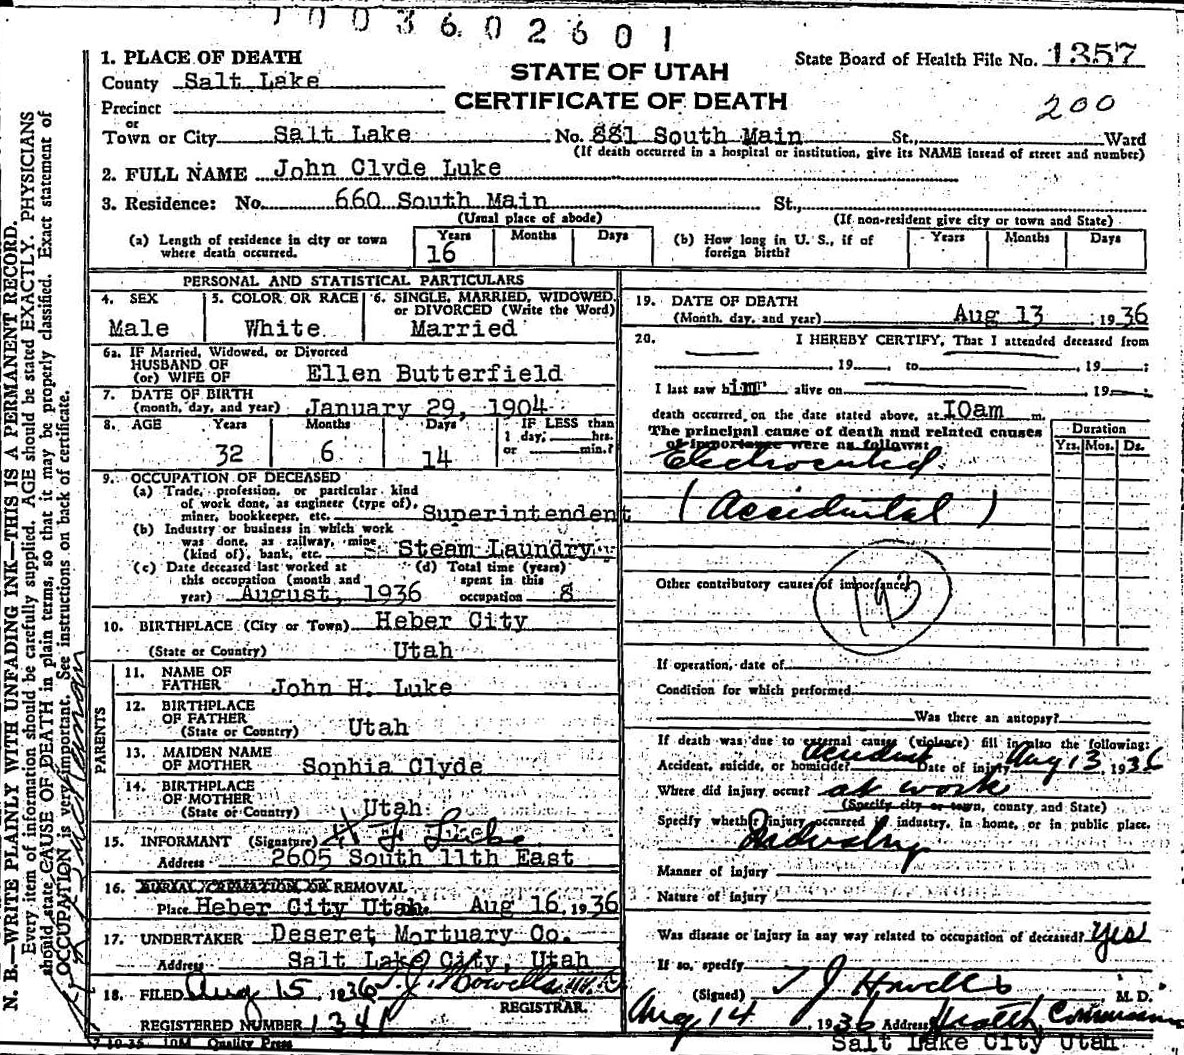 1003602601
1. PLACE OF DEATH
State Board of Health File No. 1357
County Salt Lake
STATE OF UTAH
CERTIFICATE OF DEATH
200
Precinct
or
Town or City Salt Lake No. 881 South Main St., Ward
(If death occurred in a hospital or institution, give its NAME insead of street and number)
2. FULL NAME John Clyde Luke
3. Residence: No. 660 South Main St.,
(Usual place of abode) (If non-resident give city or town and State)
(a) Length of residence in city or town where death occurred. Years 16 Months Days
(b) How long in U. S., if of foreign birth? Years Months Days
PERSONAL AND STATISTICAL PARTICULARS
4. SEX Male
5. COLOR OR RACE White
6. SINGLE, MARRIED, WIDOWED, or DIVORCED (Write the Word) Married
6a. IF Married, Widowed, or Divorced
HUSBAND OF
(or) WIFE OF Ellen Butterfield
7. DATE OF BIRTH
(month, day, and year) January 29, 1904
8. AGE Years 32 Months 6 Days 14 IF LESS than 1 day, hrs. or min.?
9. OCCUPATION OF DECEASED
(a) Trade, profession, or particular kind
of work done, as engineer (type of),
miner, bookkeeper, etc. Superintendent
(b) Industry or business in which work
was done, as railway, mine
(kind of), bank, etc. Steam Laundry
(c) Date deceased last worked at
this occupation (month and
year) August, 1936
(d) Total time (years)
spent in this
occupation 8
10. BIRTHPLACE (City or Town) Heber City
(State or Country) Utah
PARENTS
11. NAME OF
FATHER John H. Luke
12. BIRTHPLACE
OF FATHER
(State or Country) Utah
13. MAIDEN NAME
OF MOTHER Sophia Clyde
14. BIRTHPLACE
OF MOTHER
(State or Country) Utah
15. INFORMANT (Signature) Luke
Address 2605 South 11th East
16. BURIAL CREMATION OR REMOVAL
Place Heber City Utah Aug 16, 1936
17. UNDERTAKER Deseret Mortuary Co.
Address Salt Lake City, Utah
18. FILED Aug 15, 1936 T. J. Howells M.D.
REGISTRAR.
REGISTERED NUMBER 1341
7-10-35 10M Quality Press
19. DATE OF DEATH
(Month, day, and year) Aug 13 1936
20. I HEREBY CERTIFY, That I attended deceased from
19 , to 19 ;
I last saw him alive on 19 ;
death occurred on the date stated above, at 10am m.
The principal cause of death and related causes
of importance were as follows:
Duration
Yrs. Mos. Ds.
Electrocuted
(Accidental)
Other contributory causes of importance:
If operation, date of
Condition for which performed
Was there an autopsy?
If death was due to external causes (violence) fill in also the following:
Accident, suicide, or homicide? Accident Date of injury Aug 13, 1936
Where did injury occur? at work
(Specify city or town, county and State)
Specify whether injury occurred in industry, in home, or in public place.
Industry
Manner of injury
Nature of injury
Was disease or injury in any way related to occupation of deceased? Yes
If so, specify
(Signed) T J Howells M. D.
Aug 14, 1936 Address Health Commissioner
Salt Lake City Utah
N. B.—WRITE PLAINLY WITH UNFADING INK—THIS IS A PERMANENT RECORD.
Every item of information should be carefully supplied. AGE should be stated EXACTLY. PHYSICIANS
should state CAUSE OF DEATH in plain terms, so that it may be properly classified. Exact statement of
OCCUPATION is very important. See instructions on back of certificate.